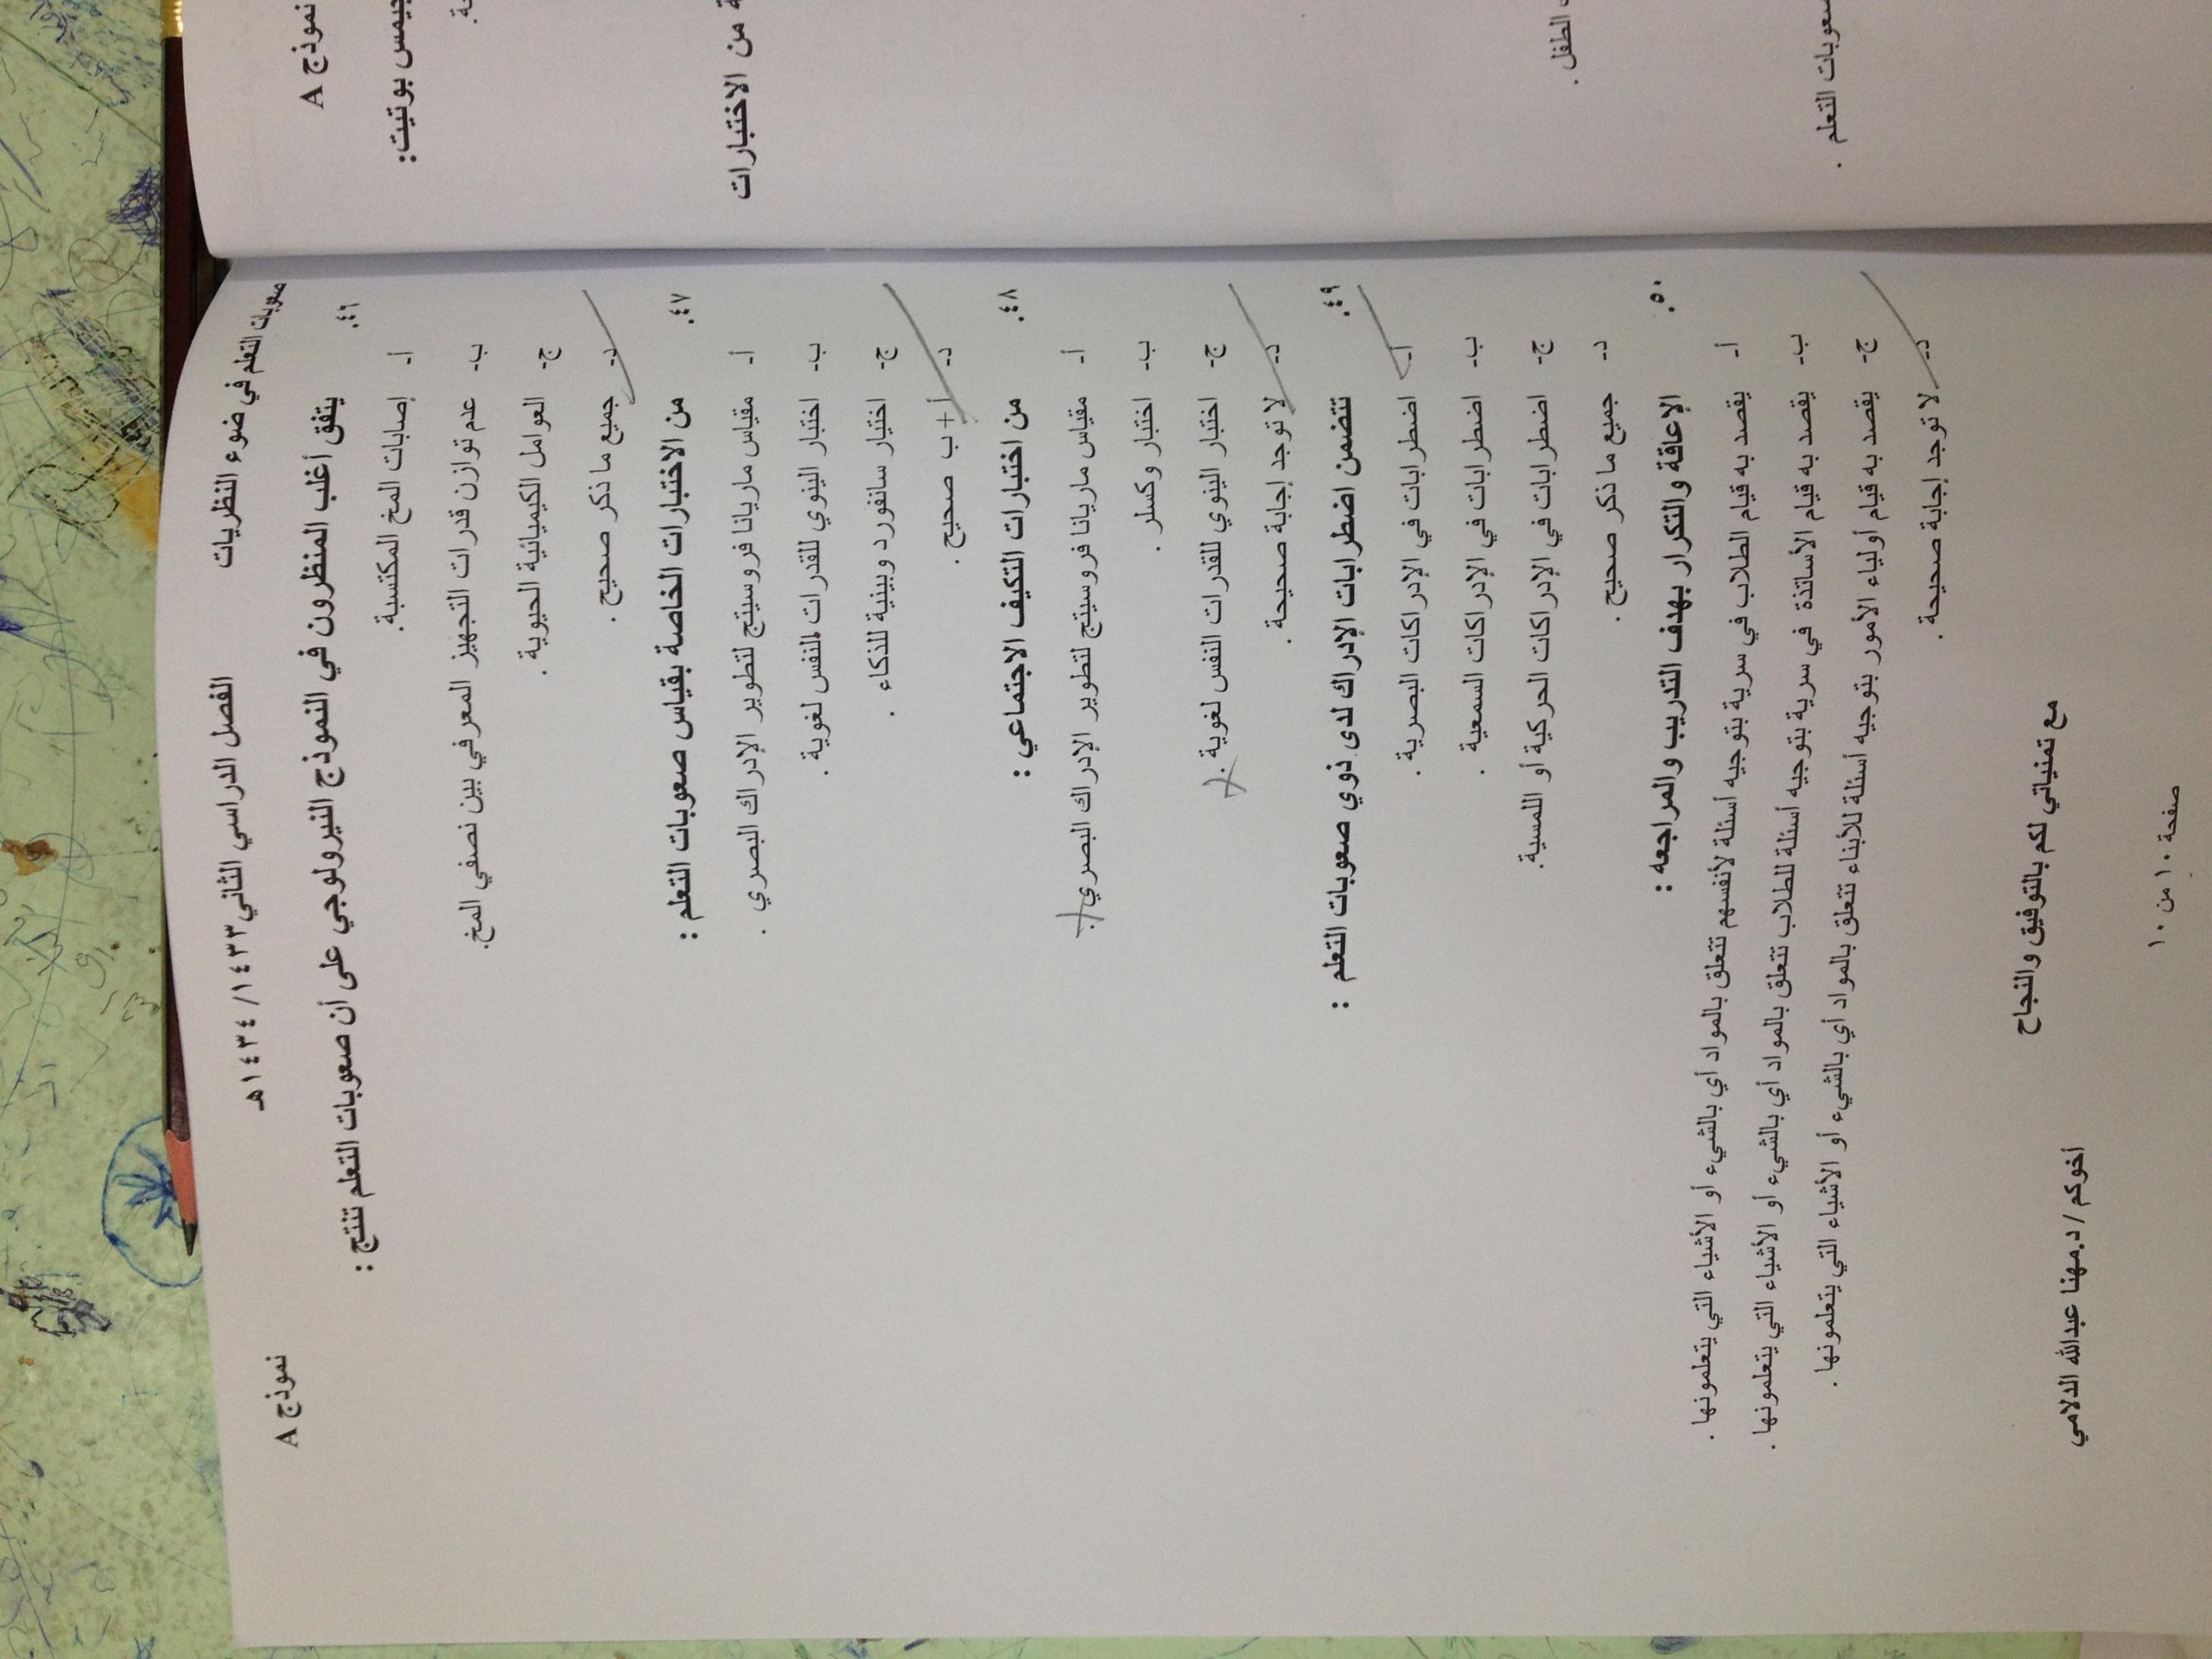 صعوبات التعلم في ضوء النظريات الفصل الدراسي الثاني ١٤٣٣/ ١٤٣٤هـ نموذج A
٤٦. يتفق أغلب المنظرون في النموذج النيرولوجي على أن صعوبات التعلم تنتج :
أ- إصابات المخ المكتسبة.
ب- عدم توازن قدرات التجهيز المعرفي بين نصفي المخ.
ج- العوامل الكيميائية الحيوية .
د- جميع ما ذكر صحيح .
٤٧. من الاختبارات الخاصة بقياس صعوبات التعلم :
أ- مقياس ماريانا فروسيتج لتطوير الإدراك البصري .
ب- اختبار الينوي للقدرات لمنفس لغوية .
ج- اختبار سانفورد وبينية للذكاء .
د- أ + ب صحيح .
٤٨. من اختبارات التكيف الاجتماعي :
أ- مقياس ماريانا فروسيتج لتطوير الإدراك البصري .
ب- اختبار وكسلر .
ج- اختبار الينوي للقدرات النفس لغوية .
د- لا توجد إجابة صحيحة .
٤٩. تتضمن اضطرابات الإدراك لدى ذوي صعوبات التعلم :
أ- اضطرابات في الإدراكات البصرية .
ب- اضطرابات في الإدراكات السمعية .
ج- اضطرابات في الإدراكات الحركية أو اللمسية.
د- جميع ما ذكر صحيح .
٥٠. الإعاقة والتكرار بهدف التدريب والمراجعه :
أ- يقصد به قيام الطلاب في سرية بتوجيه أسئلة لأنفسهم تتعلق بالمواد أي بالشيء أو الأشياء التي يتعلمونها .
ب- يقصد به قيام الأساتذة في سرية بتوجيه أسئلة للطلاب تتعلق بالمواد أي بالشيء أو الأشياء التي يتعلمونها .
ج- يقصد به قيام أولياء الأمور بتوجيه أسئلة للأبناء تتعلق بالمواد أي بالشيء أو الأشياء التي يتعلمونها .
د- لا توجد إجابة صحيحة .
مع تمنياتي لكم بالتوفيق والنجاح
أخوكم / د.مهنا عبدالله الدلامي
صفحة ١٠ من ١٠
نموذج A
بوتيت:
ة من الاختبارات
الطفل .
صعوبات التعلم .